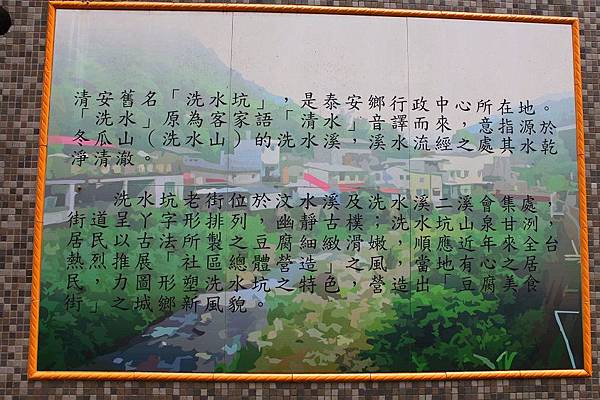 清安舊名「洗水坑」，是泰安鄉行政中心所在地。
「洗水」原為客家語「清水」音譯而來，意指源於
冬瓜山（洗水山）的洗水溪，溪水流經之處其水乾
淨清澈。
洗水坑老街位於汶水溪及洗水溪二溪會集處，
街道呈丫字形排列，幽靜古樸；洗水坑山泉甘洌，
居民以古法所製之豆腐細緻滑嫩，順應近年來全台
熱烈推展「社區總體營造」之風，當地有心之居
民，力圖形塑洗水坑之特色，營造出「豆腐美食
街」之城鄉新風貌。